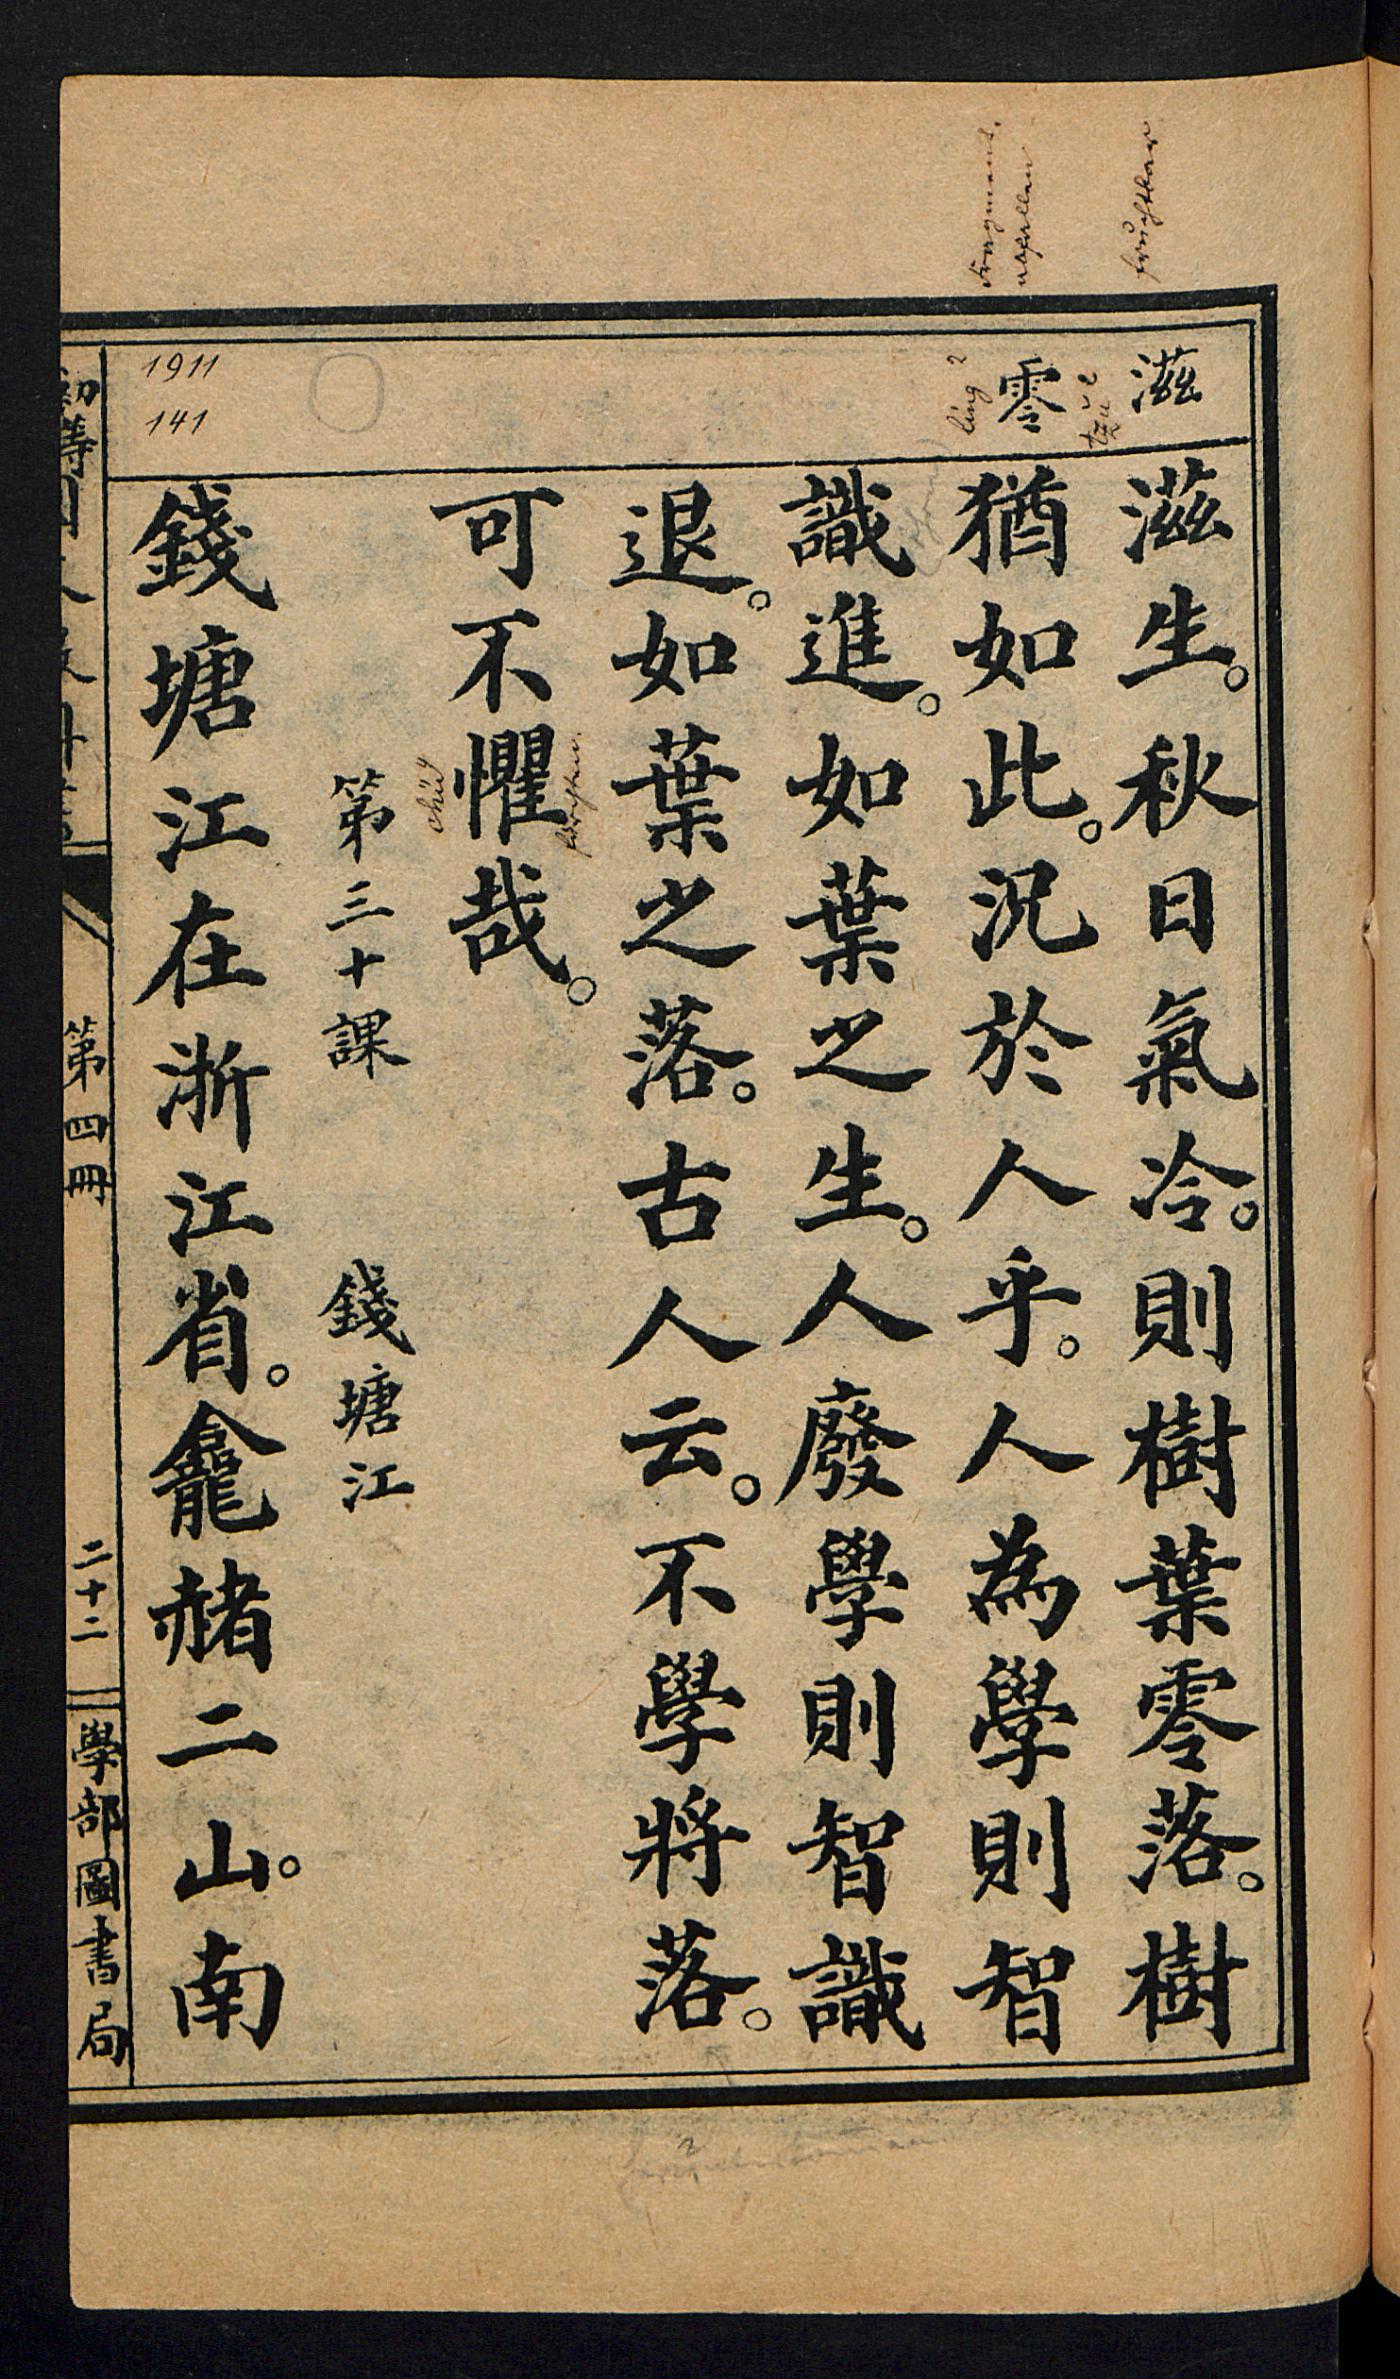 滋
零
滋生。秋日氣冷。則樹葉零落。樹
猶如此。況於人乎。人為學則智
識進。如葉之生。人廢學則智識
退。如葉之落。古人云。不學將落。
可不懼哉。
第三十課 錢塘江
錢塘江在浙江省。龕赭二山。南
第四冊
二十二
學部圖書局
1911
141
fruchtbar
ling²